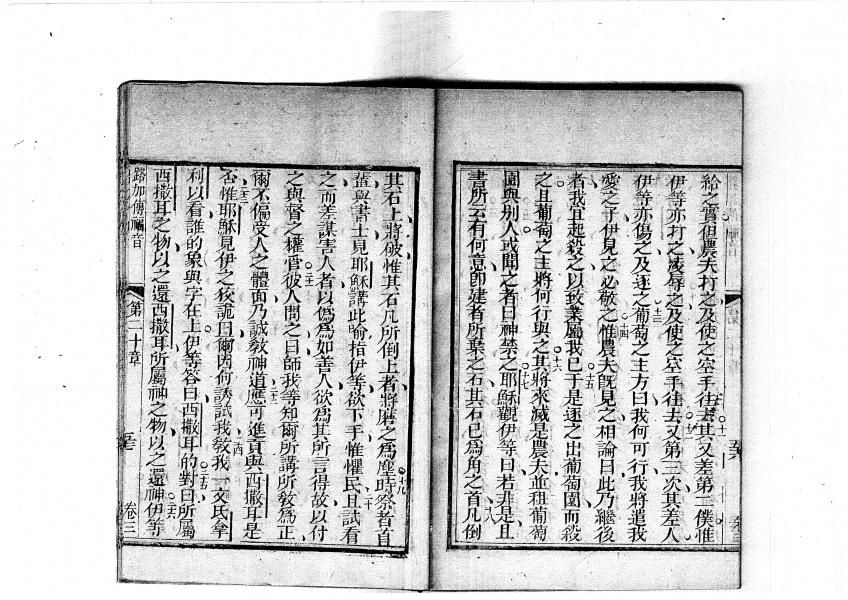 給之實但農夫打之及使之空手往去其又差第二僕惟
伊等亦打之凌辱之及使之空手往去又第三次其差人
伊等亦傷之及逐之葡萄之主方曰我何可行我將遣我
愛之子伊見之必敬之惟農夫既見之相論曰此乃繼後
者我宜起殺之以致業屬我已于是逐之出葡萄園而殺
之且葡萄之主將何行與之其將來滅是農夫並租葡萄
園與別人或聞之者曰神禁之耶穌觀伊等曰若非是且
書所云有何意即建者所棄之石其石已為角之首凡倒
其石上將破惟其石凡所倒上者將磨之為塵時祭者首
舊與書士見耶穌講此喻指伊等欲下手惟懼民且試看
之而差謀害人者以偽為如善人欲為其所言得故以付
之與督之權當彼人間之曰師我等知爾所講所教為正
爾不偏受人之體面乃誠教神道應可進貢與西撒耳是
否惟耶穌見伊之狡詭曰爾因何誘試我教我一文氏拿
利以看誰的象與字在上伊等答曰西撒耳的對曰所屬
西撒耳之物以之還西撒耳所屬神之物以之還神伊等
路加傳福音
第二十章
卷三